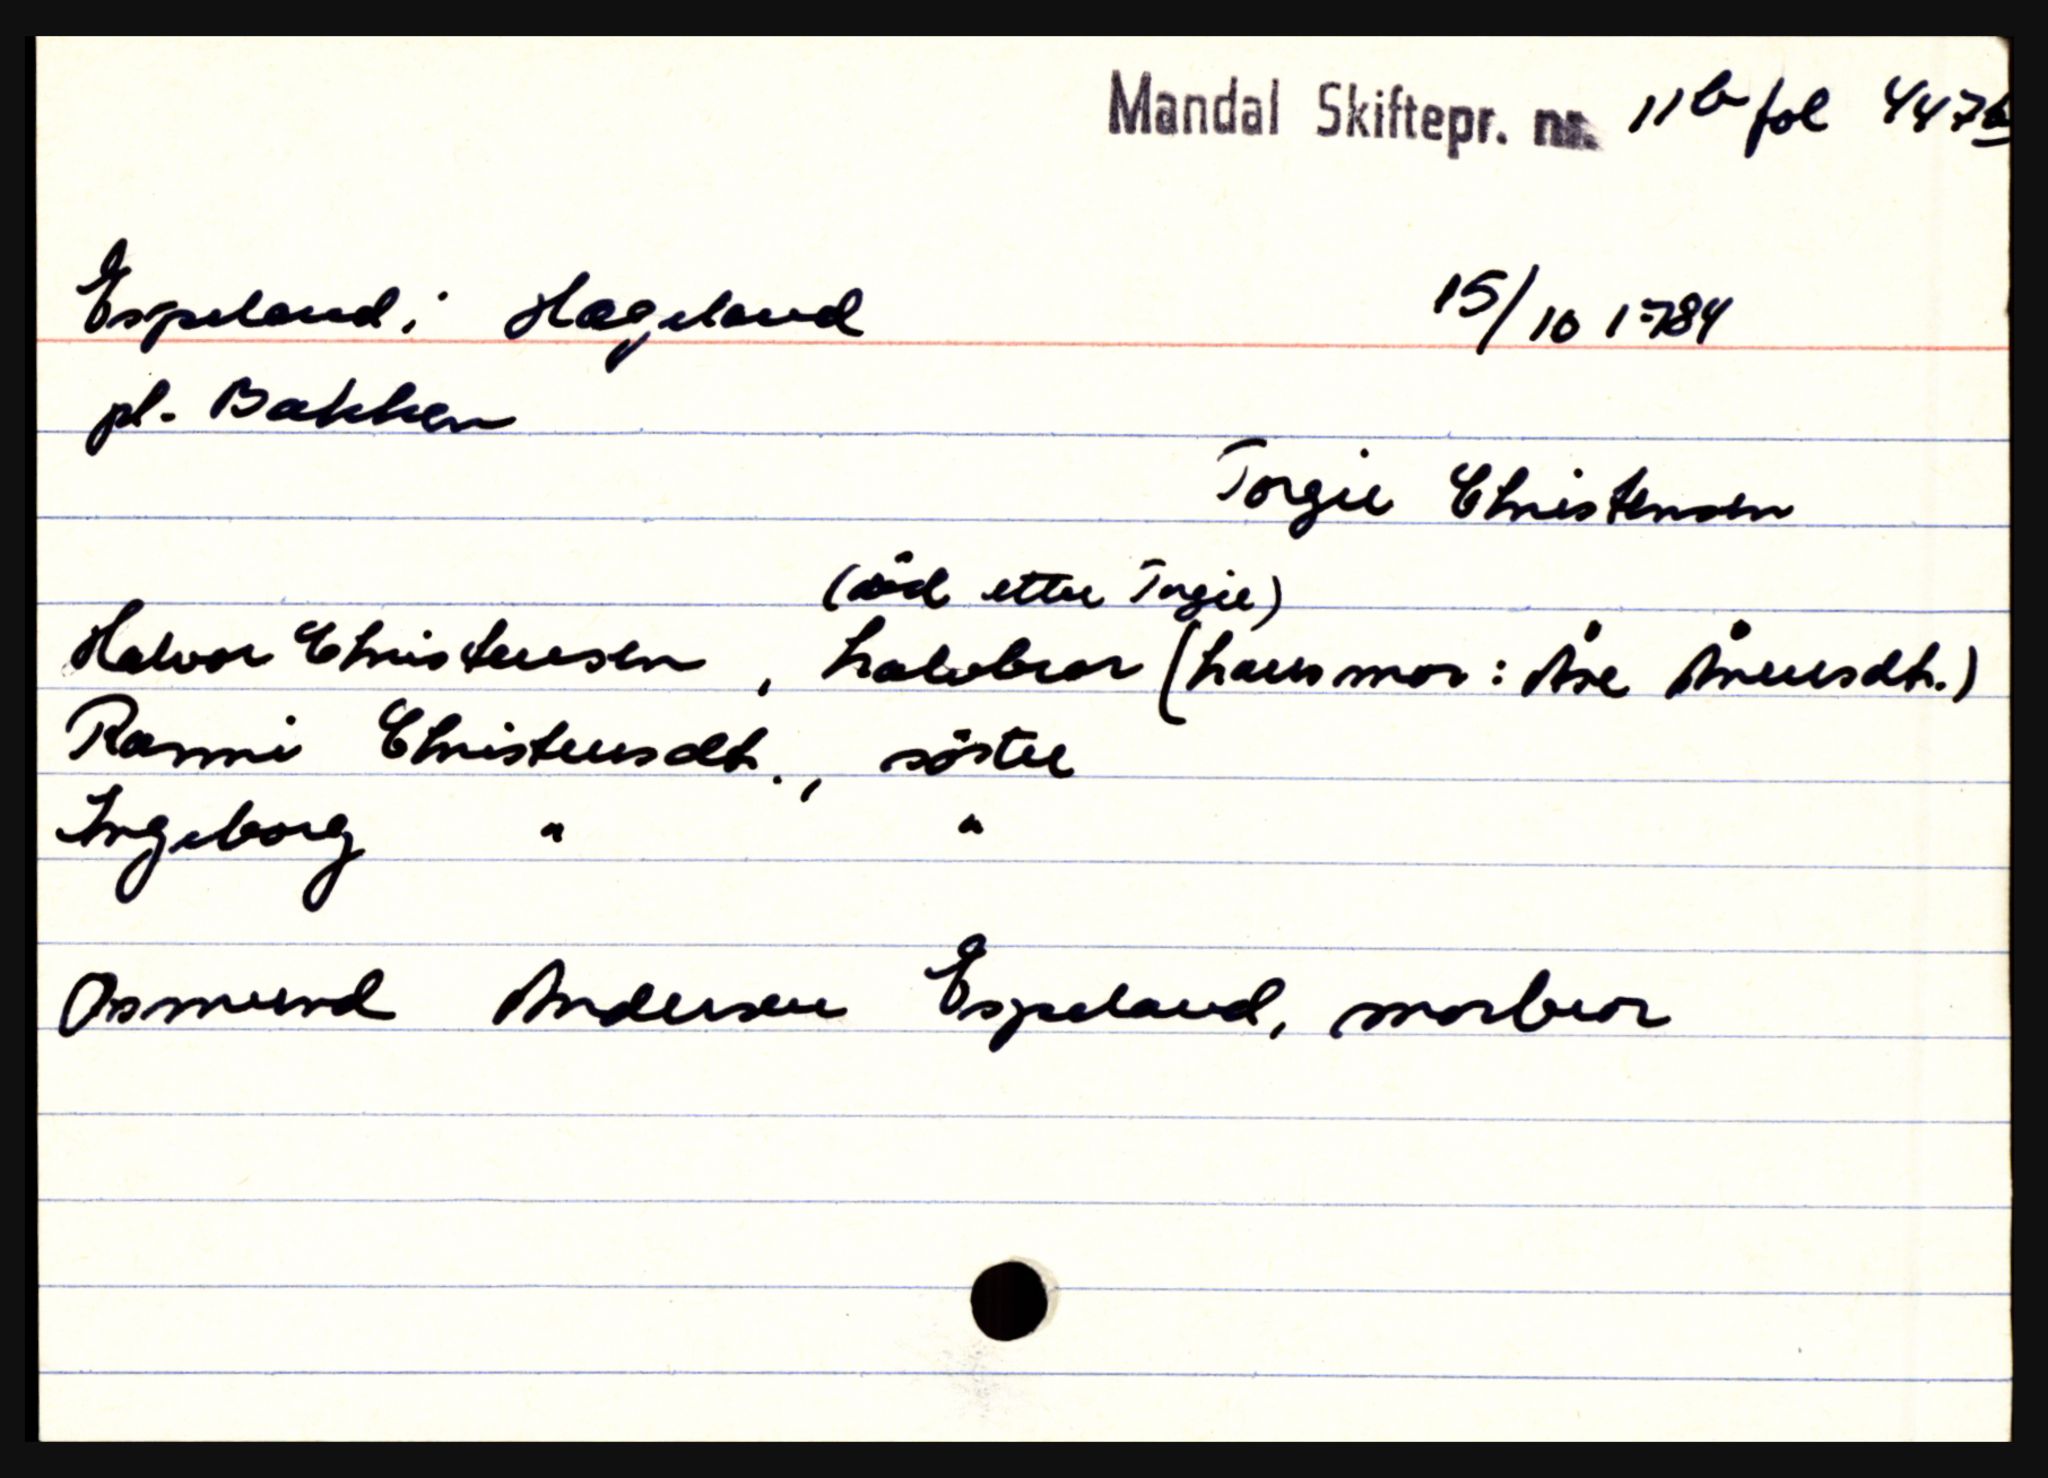 Mandal Skiftepr. nr. 11b fol 447b
Espeland i Hægeland 15/10 1784
pl. Bakken
Torgie Christensen
(död etter Torgie)
Halvor Christensen, halvbror (hans mor: Åse Ånunsdtr.)
Ranni Christensdtr., söster
Ingeborg " "
Osmund Andersen Espeland, morbror